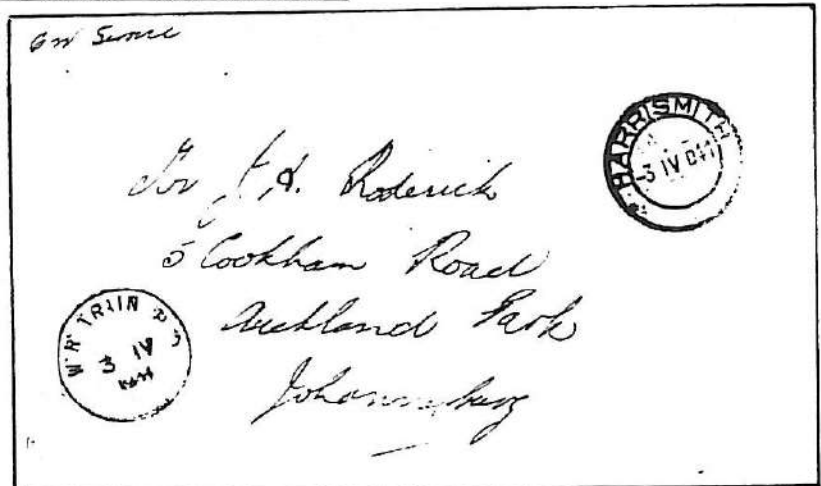 On Service
HARRISMITH
-3 IV
J. H. Roderick
5 Cookham Road
Auckland Park
Johannesburg
TRAIN
3 IV